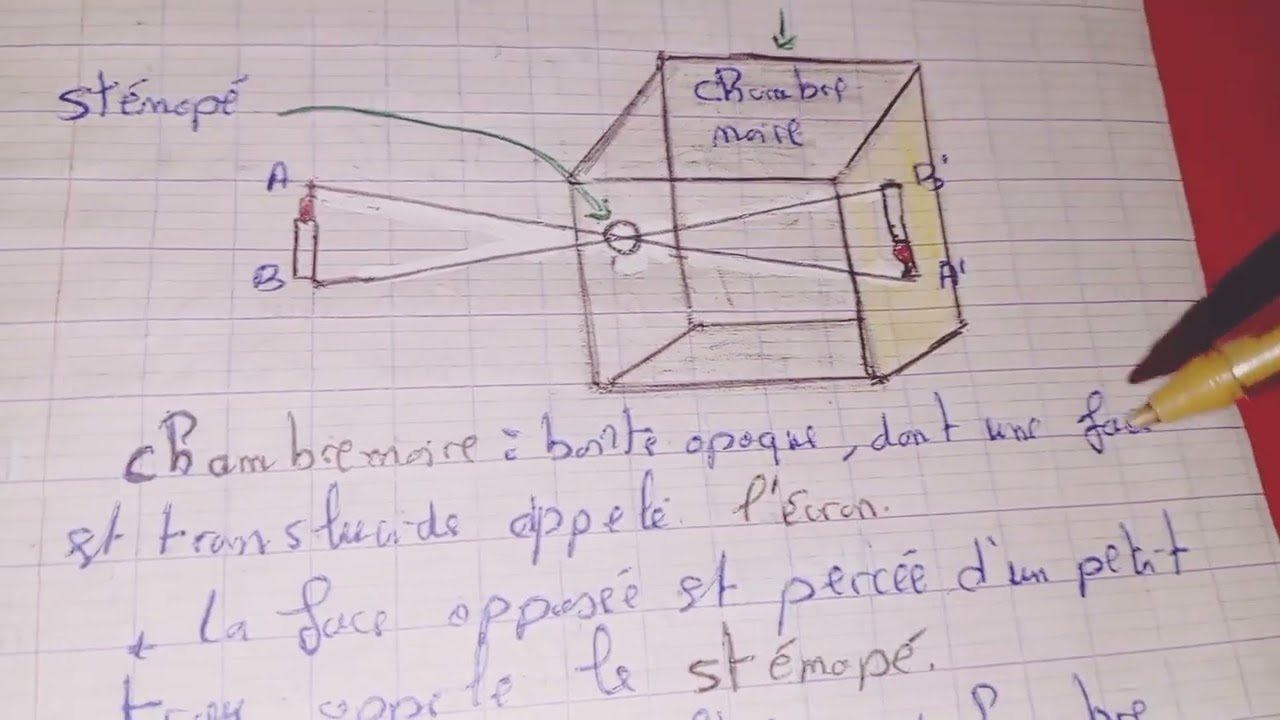 sténopé
chambre
noire
A
B'
B
A'
chambre noire : boîte opaque, dont une face
est translucide appelé l'écran.
+ la face opposée est percée d'un petit
trou appelé le sténopé.